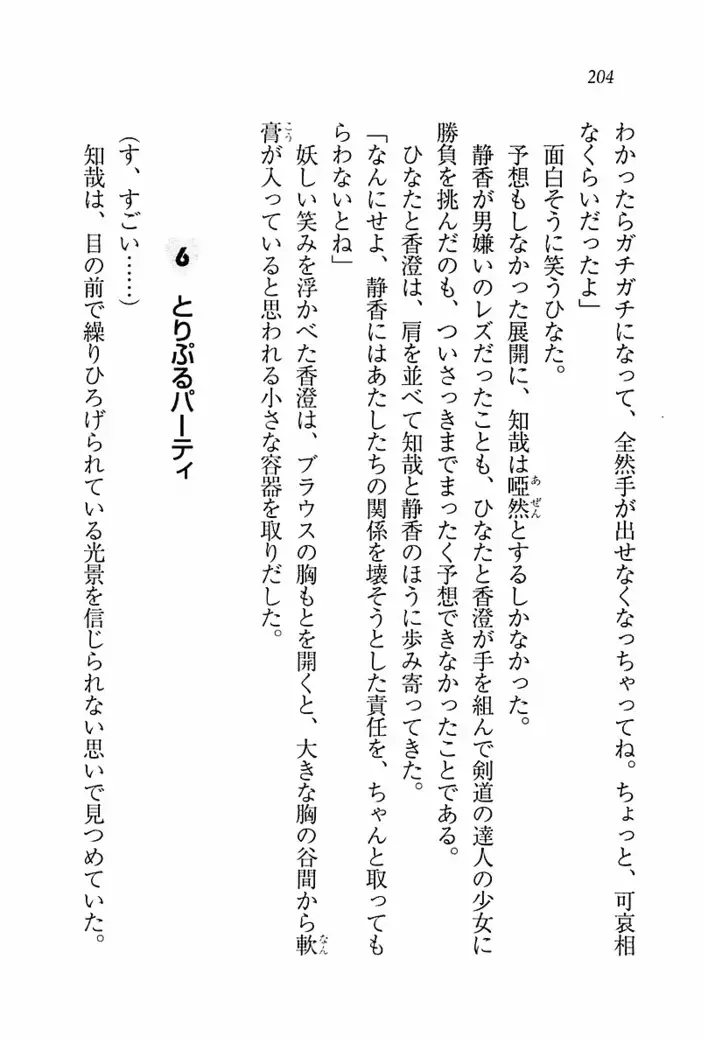 204
わかったらガチガチになって、全然手が出せなくなっちゃってね。ちょっと、可哀相
なくらいだったよ」
面白そうに笑うひなた。
予想もしなかった展開に、知哉は啞然とするしかなかった。
静香が男嫌いのレズだったことも、ひなたと香澄が手を組んで剣道の達人の少女に
勝負を挑んだのも、ついさっきまでまったく予想できなかったことである。
ひなたと香澄は、肩を並べて知哉と静香のほうに歩み寄ってきた。
「なんにせよ、静香にはあたしたちの関係を壊そうとした責任を、ちゃんと取っても
らわないとね」
妖しい笑みを浮かべた香澄は、ブラウスの胸もとを開くと、大きな胸の谷間から軟
膏が入っていると思われる小さな容器を取りだした。
6 とりぷるパーティ
（す、すごい……）
知哉は、目の前で繰りひろげられている光景を信じられない思いで見つめていた。